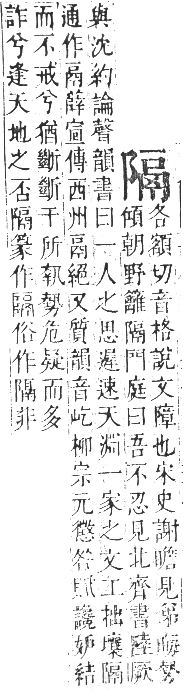 隔
各額切音格說文障也宋史謝瞻見弟晦勢
傾朝野籬隔門庭曰吾不忍見北齊書陸厥
與沈約論聲韻書曰一人之思遲速天淵一家之文工拙壤隔
通作鬲薛宣傳西州鬲絕又質韻音屹柳宗元懲咎賦讒妒結
而不戒兮猶斷斷于所執勢危疑而多
詐兮逢天地之否隔篆作隔俗作隔非